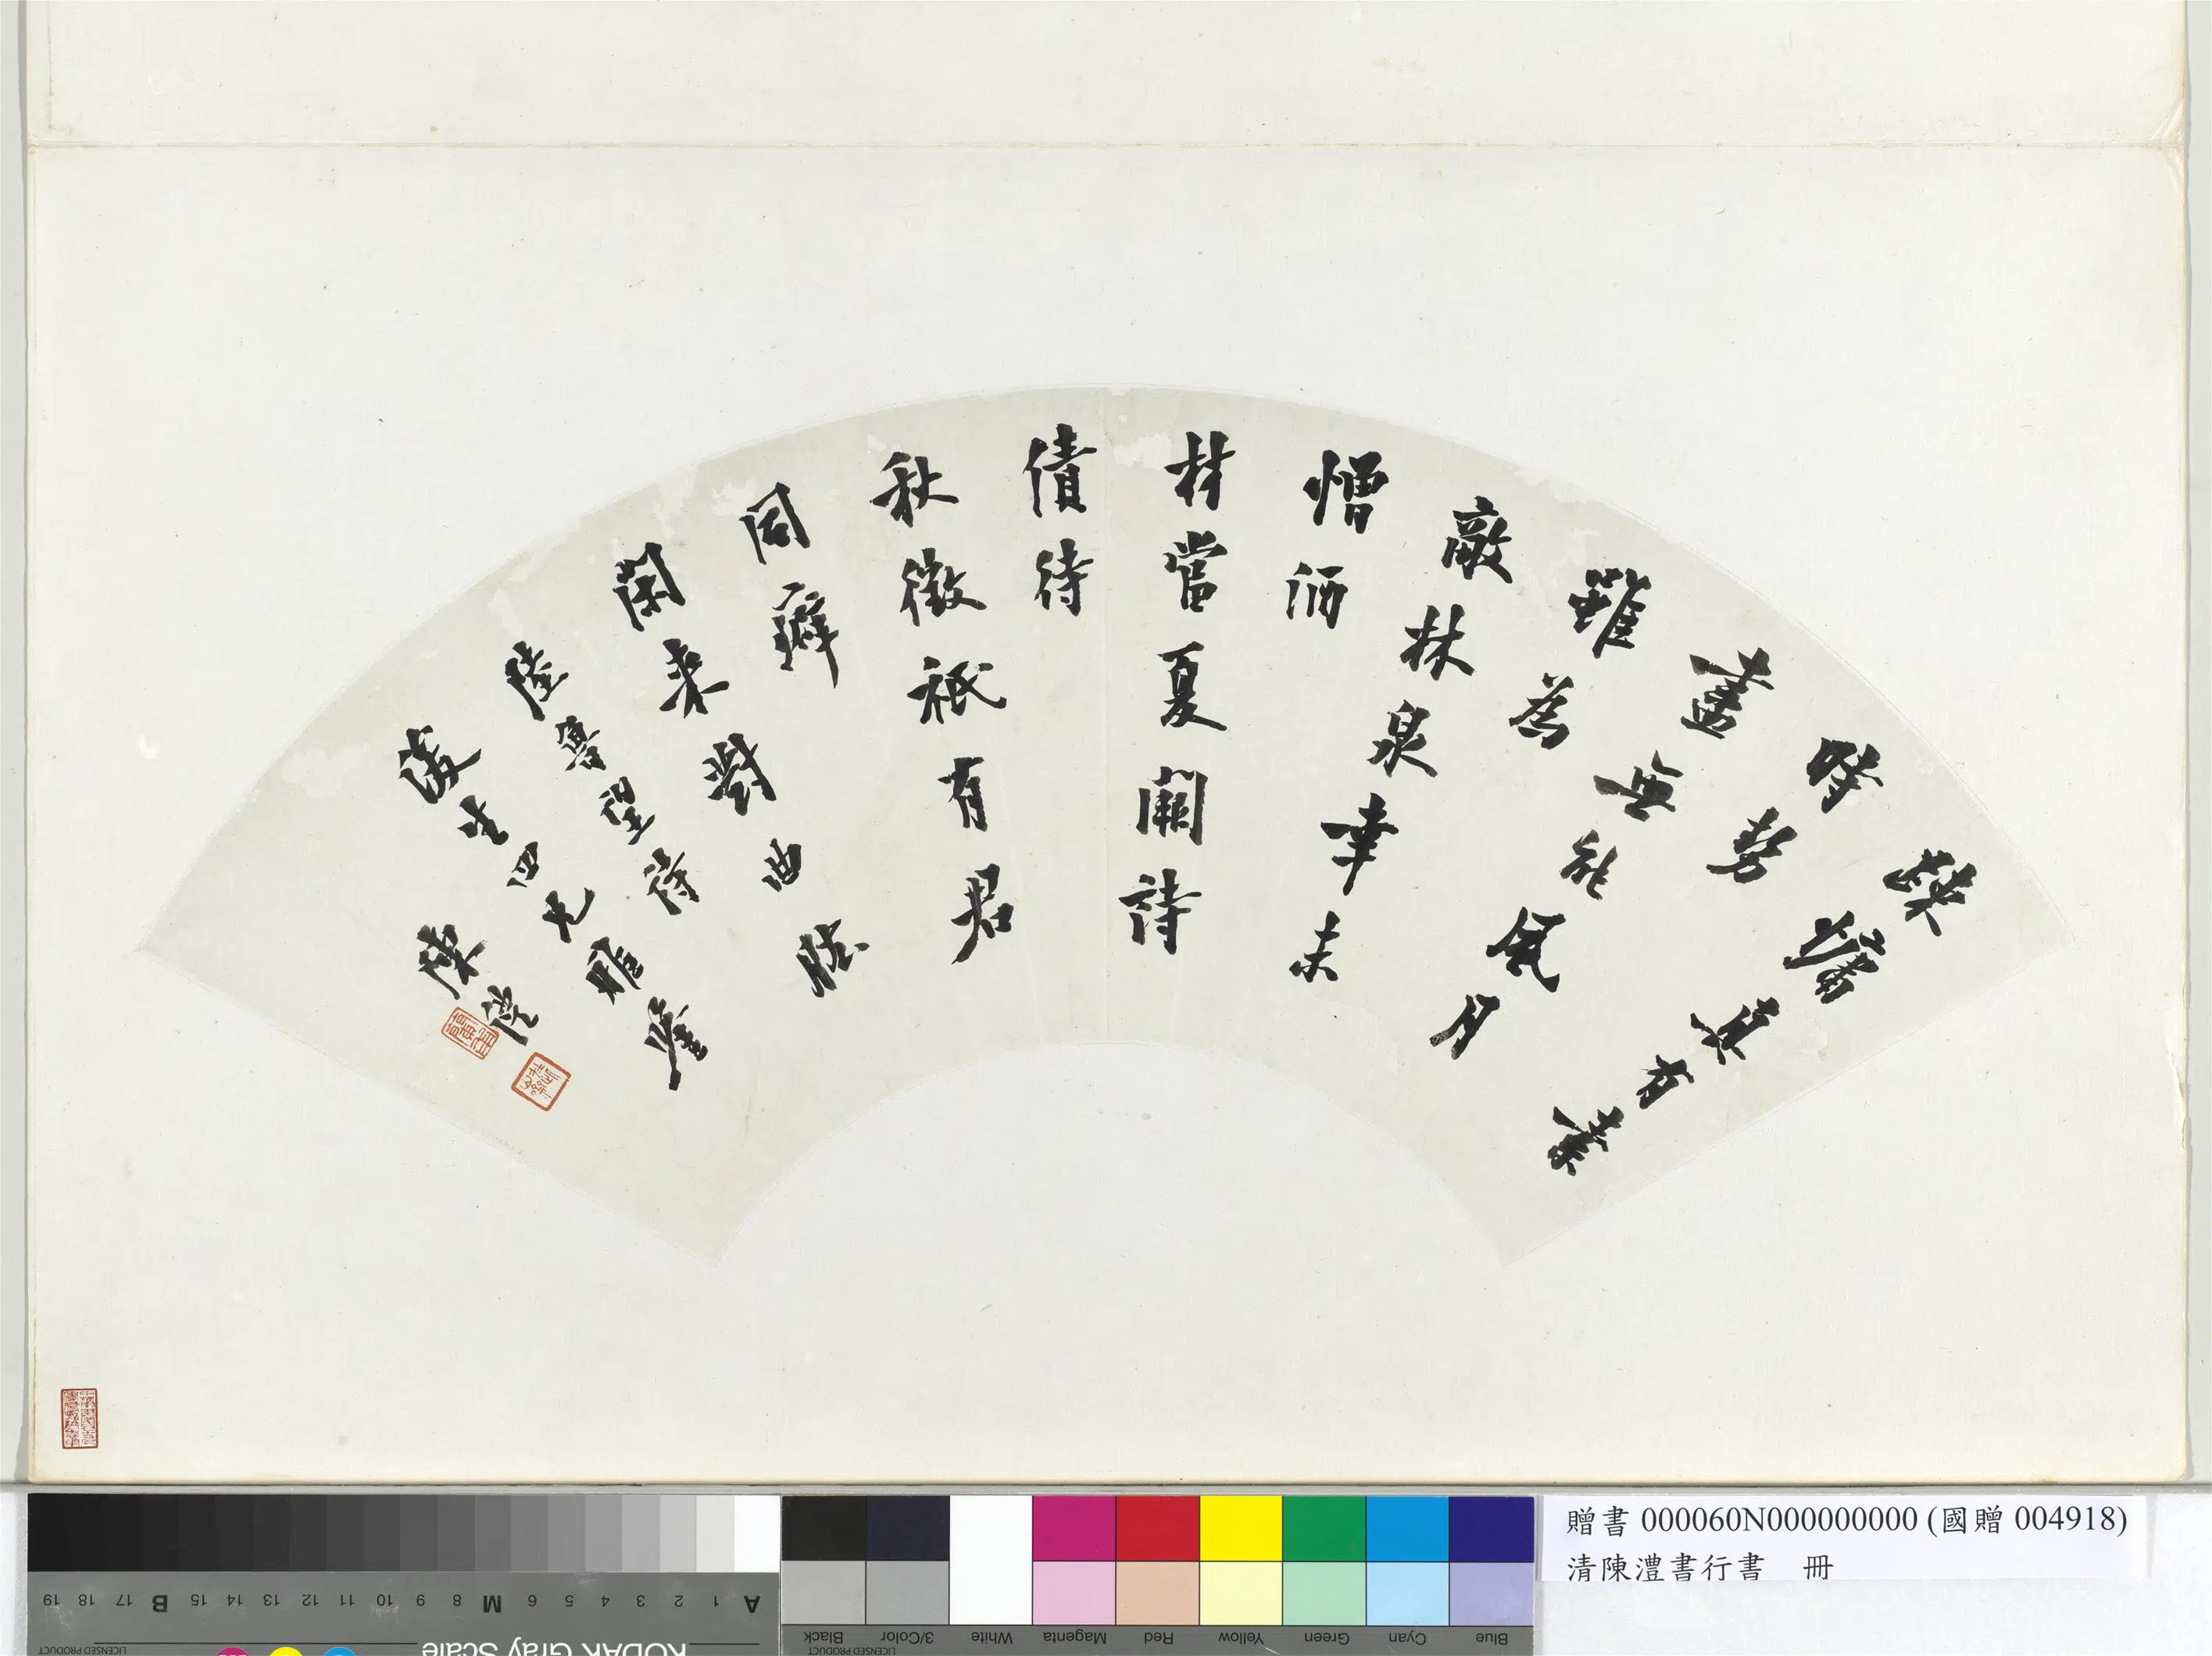 蒲有業
時勢
盡無能風月
雖為
敵林泉幸未
憎酒
材當夏闕詩
債待
秋徵祇有君
同癖
閑來對曲肱
陸魯望詩
浚生四兄雅鑒
陳澧
贈書 000060N000000000 (國贈 004918)
清陳澧書行書　冊
KODAK Gray Scale
LICENSED PRODUCT
A 1 2 3 4 5 6 M 8 9 10 11 12 13 14 15 B 17 18 19
Blue Cyan Green Yellow Red Magenta White 3/Color Black
LICENSED PRODUCT